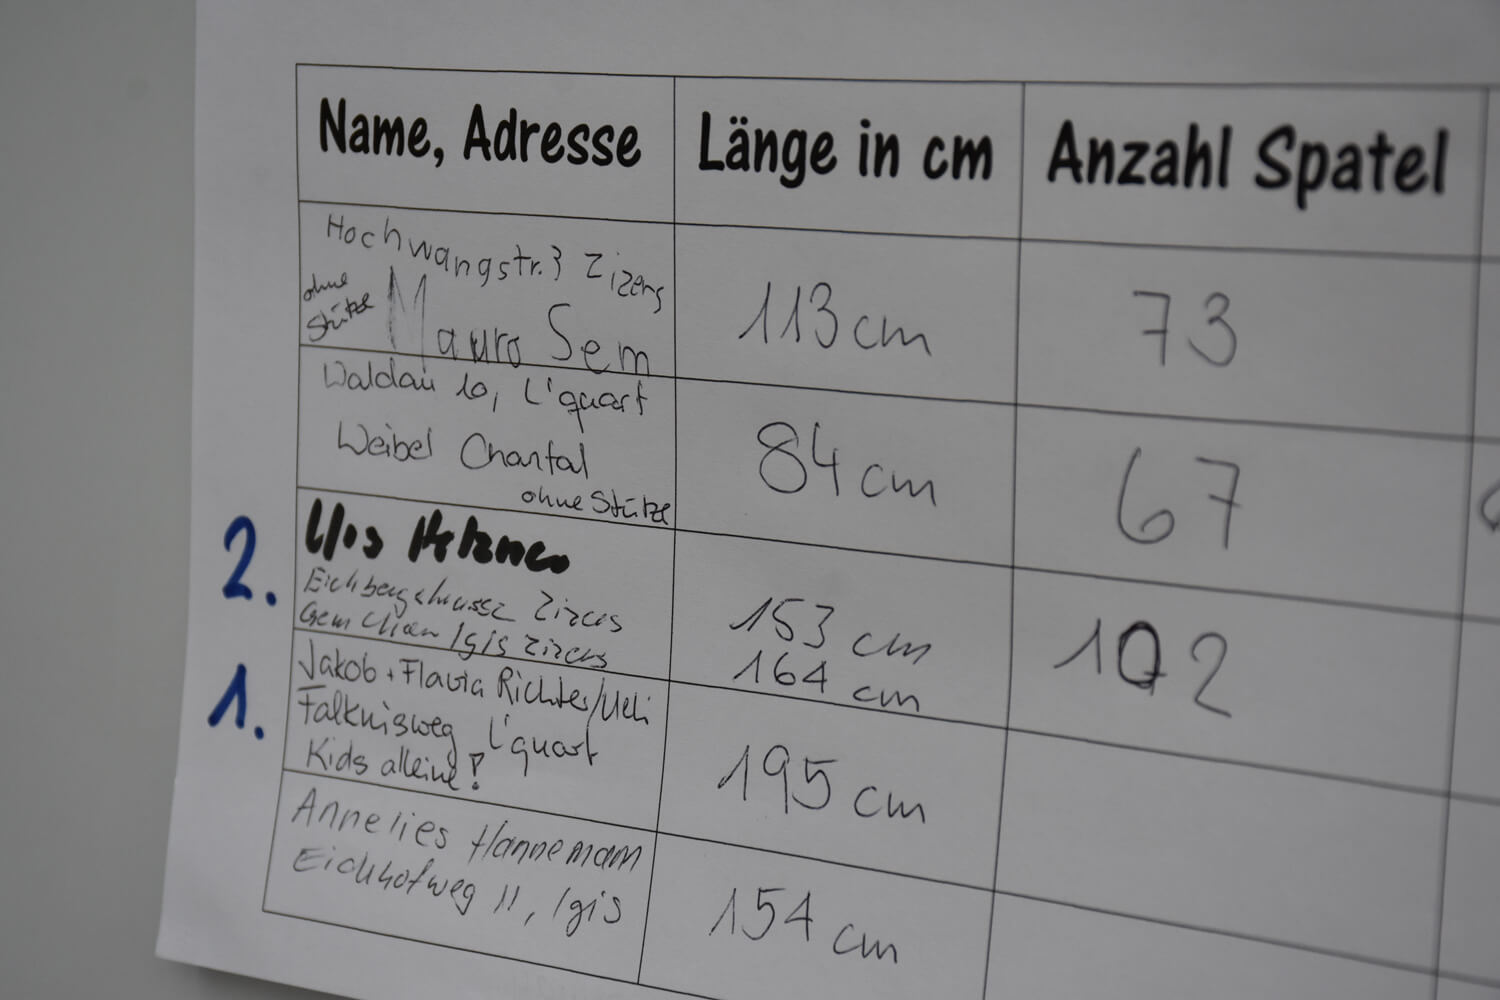 Name, Adresse
Länge in cm
Anzahl Spatel
Hochwangstr. 3 Zizers
ohne Stütze
Mauro Sem
113 cm
73
Waldau 10, L'quart
Weibel Chantal
ohne Stütze
84 cm
67
2.
Zizers
Igis Zizers
153 cm
164 cm
102
1.
Jakob + Flavia Richter/Ueli
Falknisweg L'quart
Kids alleine!
195 cm
Annelies Hannemann
Eichhofweg 11, Igis
154 cm